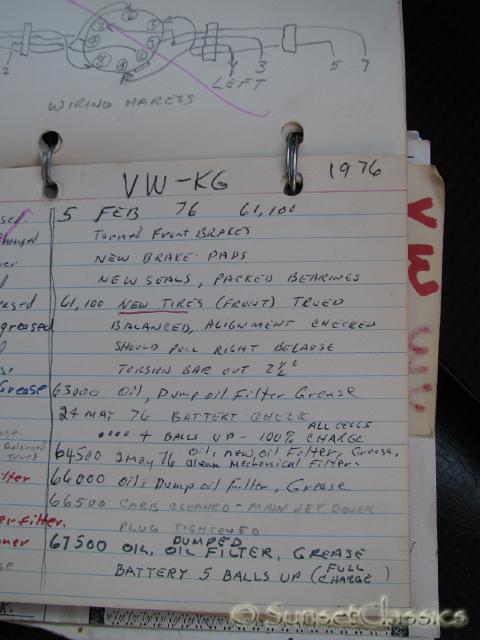 2
3
5
7
LEFT
WIRING HARESS
VW-KG
1976
5 FEB 76 61,100
Turned Front BRAKES
NEW BRAKE PADS
NEW SEALS, PACKED BEARINGS
61,100 NEW TIRES (FRONT) TRUED
BALANCED, ALIGNMENT CHECKED
SHOULD PULL RIGHT BECAUSE
TORSION BAR OUT 2½°
63000 Oil, Dump oil Filter Grease
24 MAY 76 BATTERY CHECK
4 BALLS UP - 100% CHARGE
ALL CELLS
64500 2 May 76 Oil, new oil Filter, Grease,
Clean Mechanical Filter
66000 oil, Dump oil Filter, Grease
66500 CARB CLEANED - MAIN JET COVER
PLUG TIGHTENED
67500 OIL, DUMPED OIL FILTER, GREASE
BATTERY 5 BALLS UP (FULL CHARGE)
greased
Grease
er filter.
VW
© SunsetClassics